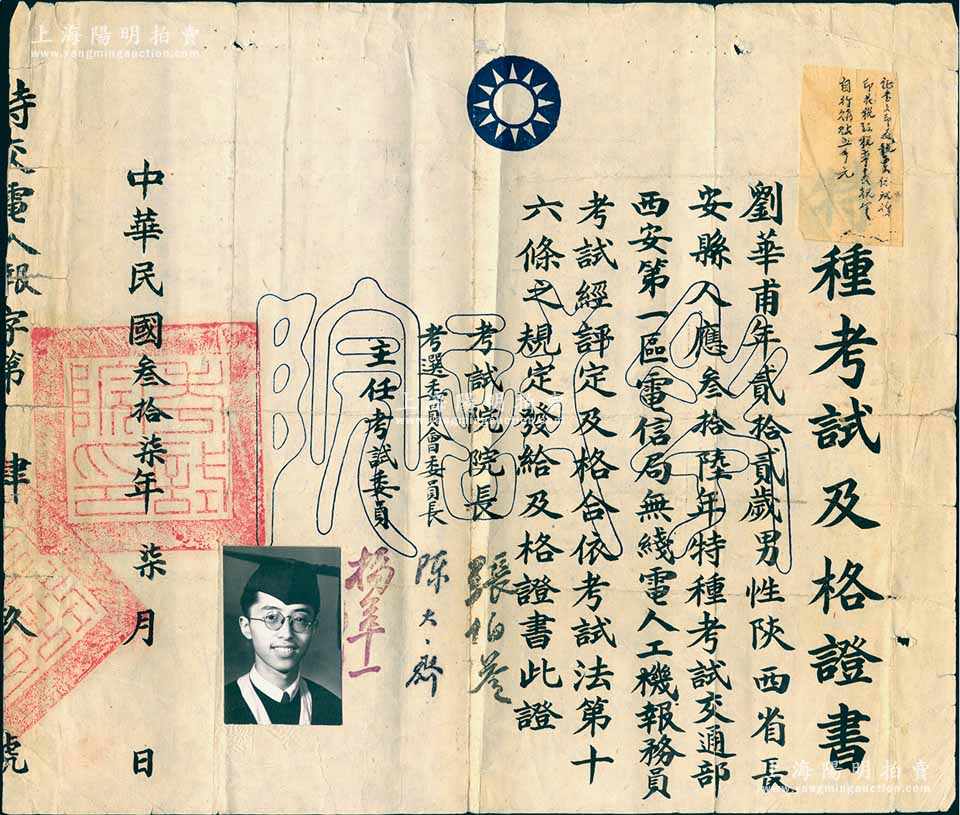 上海陽明拍賣
www.yangmingauction.com
種考試及格證書
劉華甫年貳拾貳歲男性陝西省長
安縣人應叁拾陸年特種考試交通部
西安第一區電信局無綫電人工機報務員
考試經評定及格合依考試法第十
六條之規定發給及格證書此證
考試院院長
張伯苓
考選委員會委員長
陳大齊
主任考試委員
中華民國叁拾柒年柒月日
特交電人報字第肆玖號
考試院
上海陽明拍賣
www.yangmingauction.com
上海陽明拍賣
www.yangmingauction.com